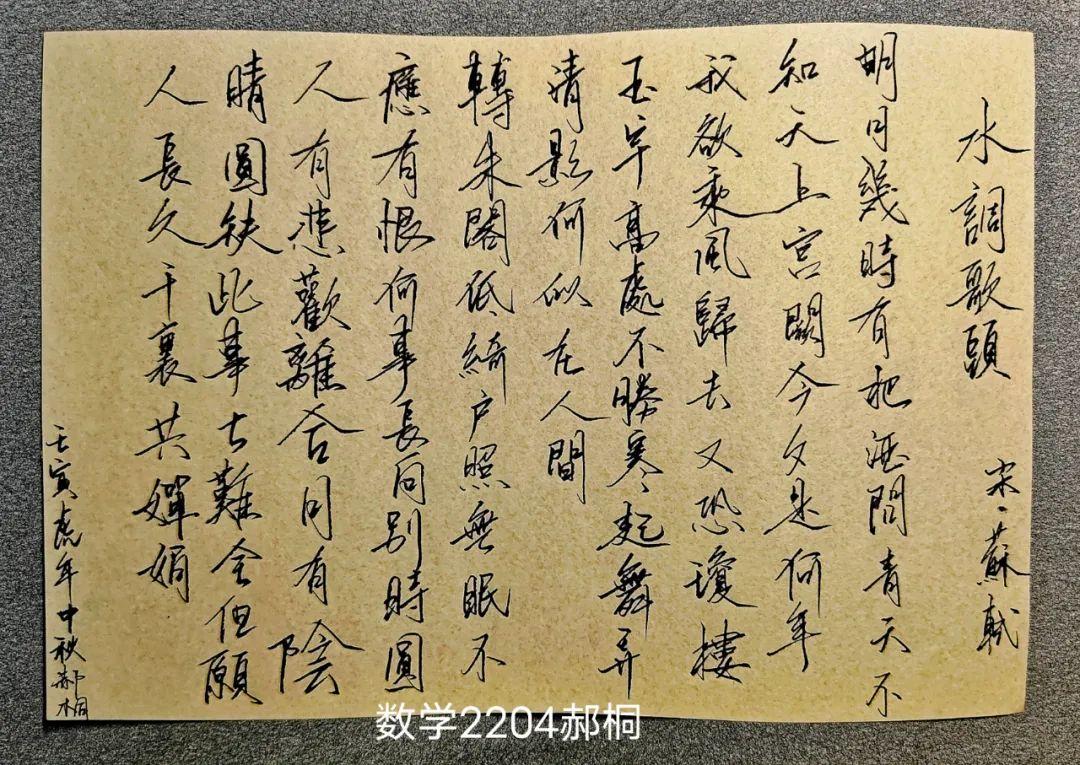 水調歌頭 宋·蘇軾
明月幾時有把酒問青天不
知天上宮闕今夕是何年
我欲乘風歸去又恐瓊樓
玉宇高處不勝寒起舞弄
清影何似在人間
轉朱閣低綺户照無眠不
應有恨何事長向别時圓
人有悲歡離合月有陰
晴圓缺此事古難全但願
人長久千裏共嬋娟
壬寅虎年中秋郝桐
数学2204郝桐